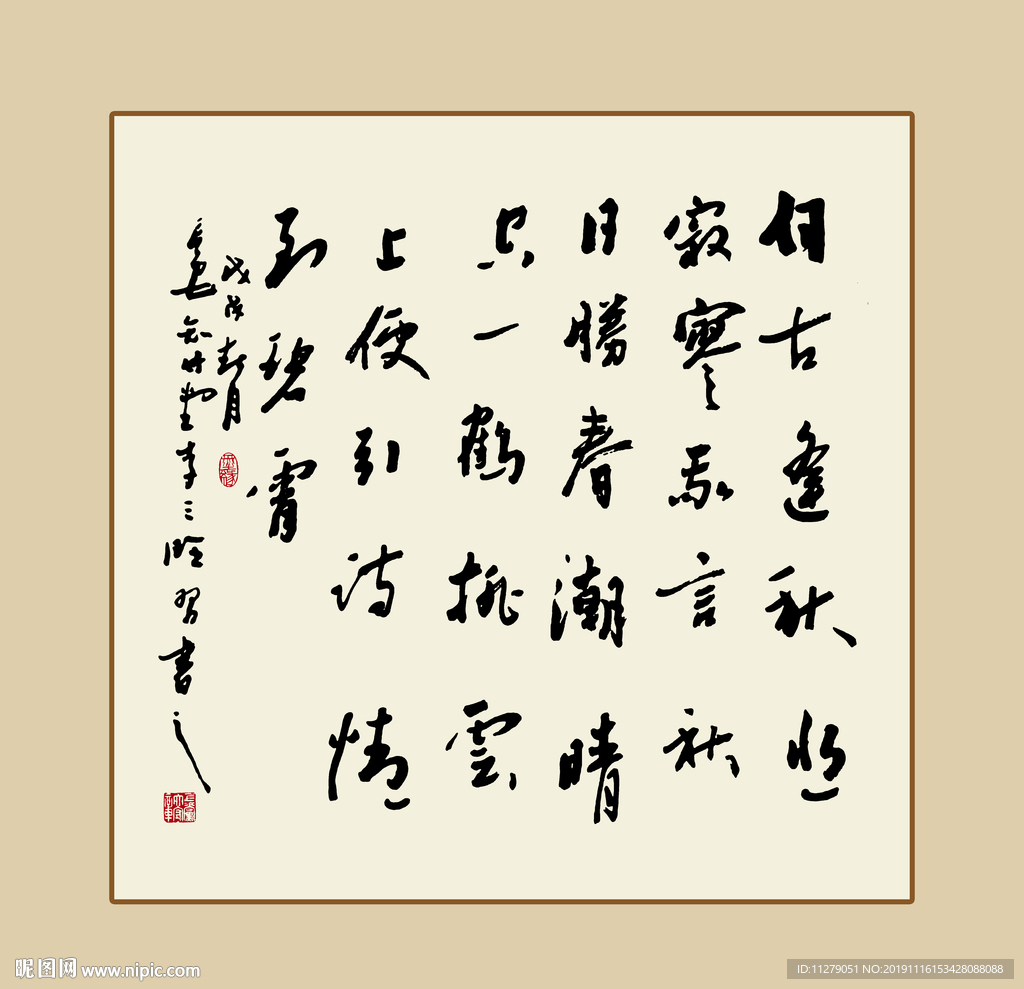 自古逢秋悲
寂寥我言秋
日勝春潮晴
空一鶴排雲
上便引詩情
到碧霄
戊戌春月
習書之
昵图网 www.nipic.com
ID:11279051 NO:20191116153428088088